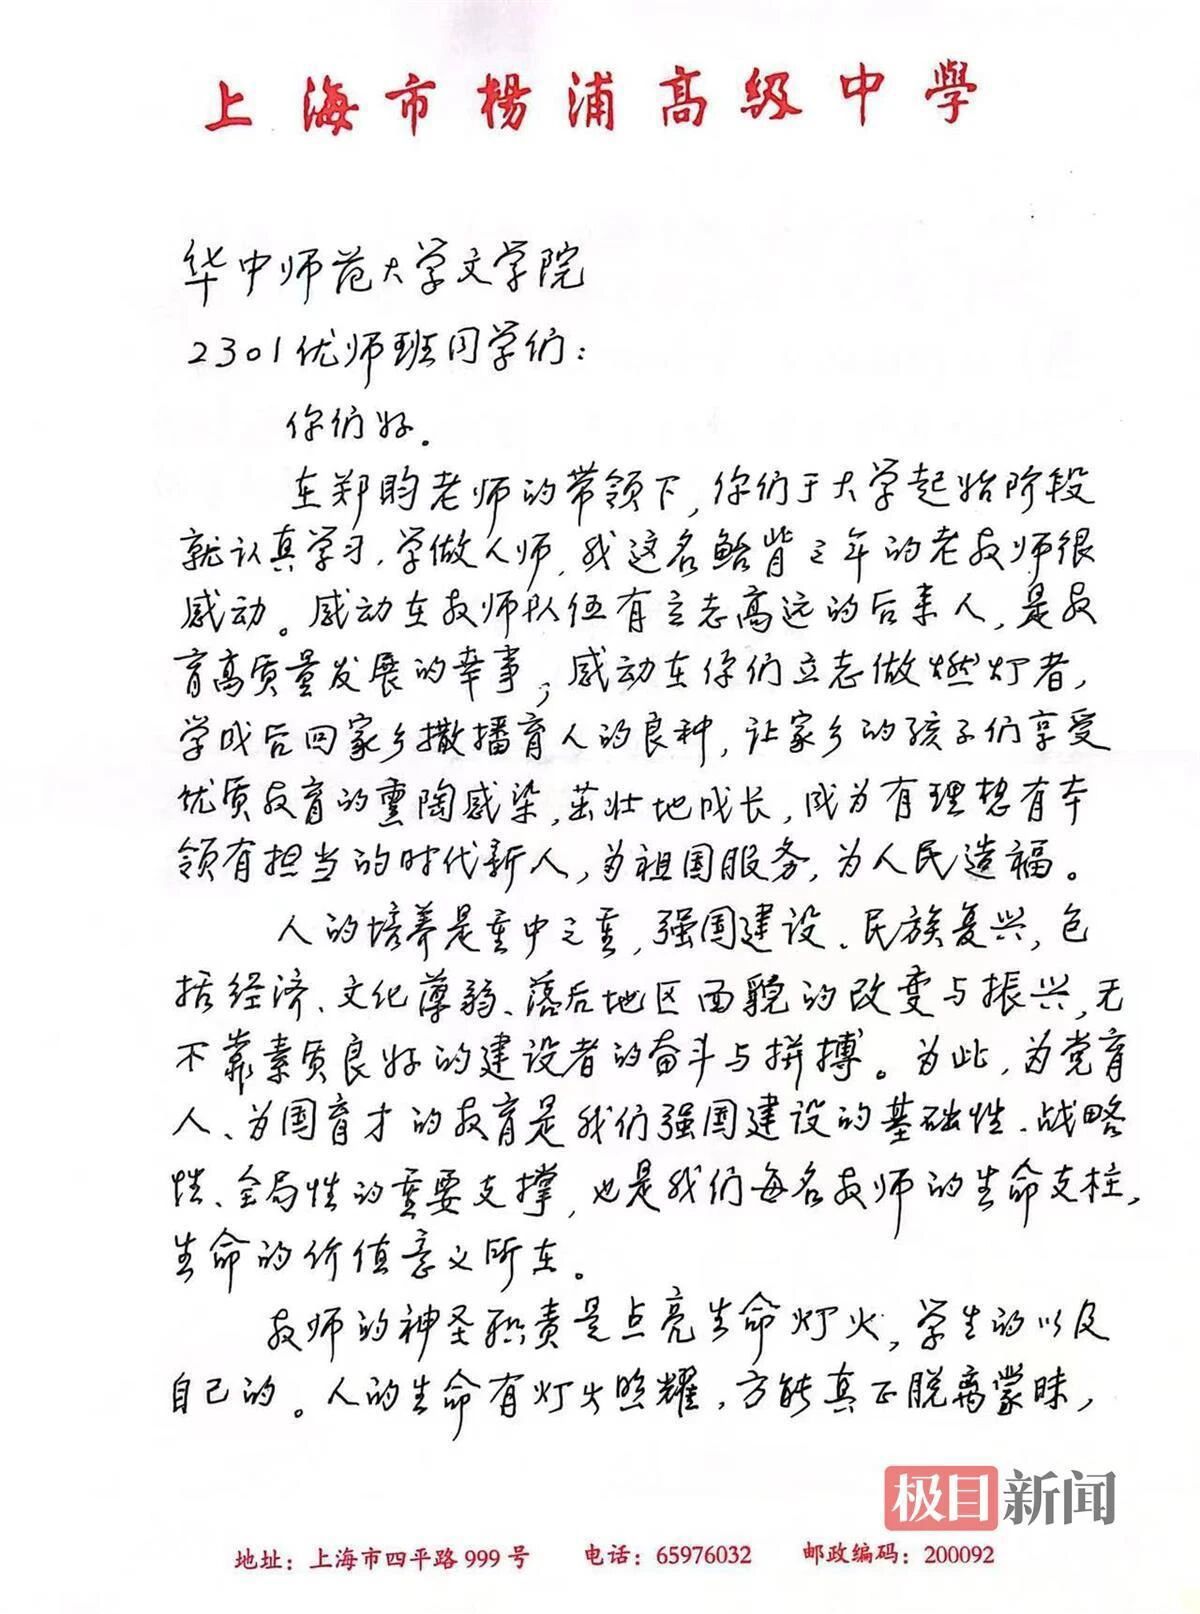 上海市杨浦高级中學
华中师范大学文学院
2301优师班同学们：
你们好。
在郑昀老师的带领下，你们于大学起始阶段
就认真学习，学做人师，我这名鲐背之年的老教师很
感动。感动在教师队伍有立志高远的后来人，是教
育高质量发展的幸事；感动在你们立志做燃灯者，
学成后回家乡撒播育人的良种，让家乡的孩子们享受
优质教育的熏陶感染，茁壮地成长，成为有理想有本
领有担当的时代新人，为祖国服务，为人民造福。
人的培养是重中之重，强国建设、民族复兴，包
括经济、文化薄弱、落后地区面貌的改变与振兴，无
不靠素质良好的建设者的奋斗与拼搏。为此，为党育
人、为国育才的教育是我们强国建设的基础性、战略
性、全局性的重要支撑，也是我们每名教师的生命支柱，
生命的价值意义所在。
教师的神圣职责是点亮生命灯火，学生的以及
自己的。人的生命有灯火照耀，方能真正脱离蒙昧，
极目新闻
地址：上海市四平路999号 电话：65976032 邮政编码：200092